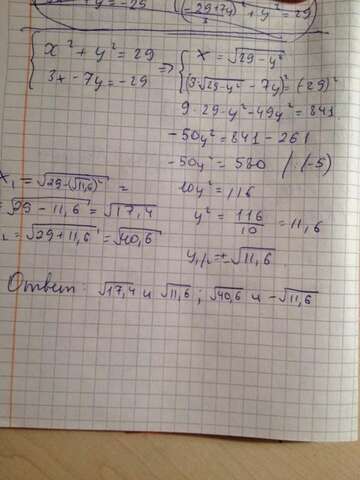 x² + y² = 29
3x - 7y = -29
=>
x = √29-y²
(3√29-y² - 7y)² = (-29)²
9·29-y²-49y² = 841
-50y² = 841 - 261
-50y² = 580 / (-5)
10y² = 116
y² = 116/10 = 11,6
y₁,₂ = ±√11,6
x₁ = √29-(√11,6)² =
= √29 - 11,6 = √17,4
= √29+11,6 = √40,6
Ответ: √17,4 и √11,6 ; √40,6 и -√11,6